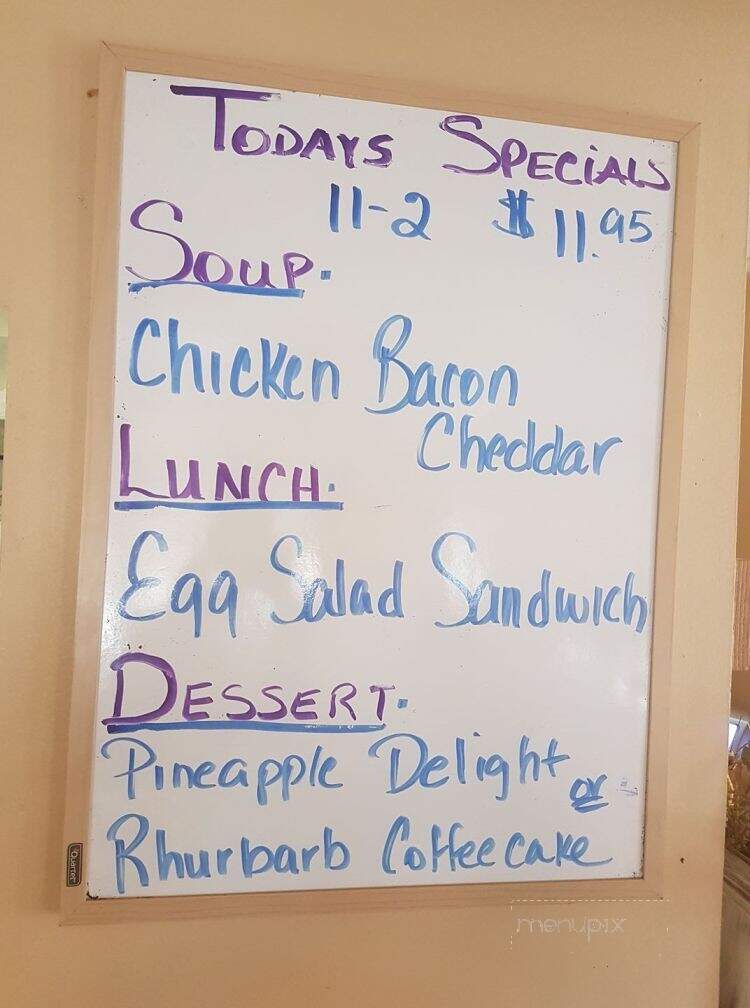 TODAYS SPECIALS
11-2 $11.95
SOUP.
Chicken Bacon
Cheddar
LUNCH.
Egg Salad Sandwich
DESSERT.
Pineapple Delight or
Rhurbarb Coffeecake
Quartet
menupix